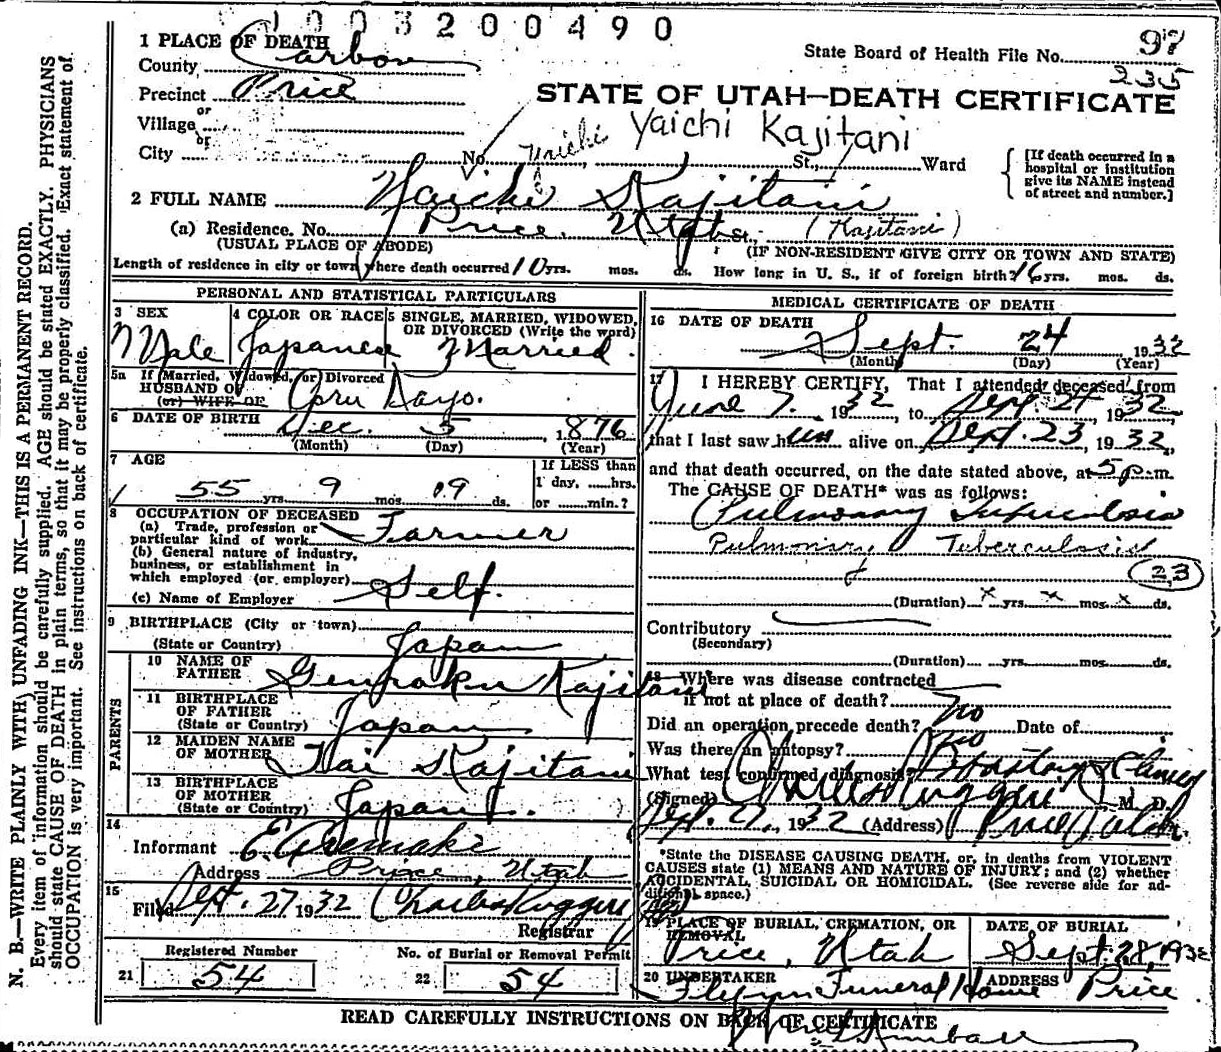 1003200490
1 PLACE OF DEATH
County Carbon
State Board of Health File No. 97
235
Precinct Price
STATE OF UTAH—DEATH CERTIFICATE
or
Village
Yaichi Kajitani
or
City No. St., Ward
[If death occurred in a hospital or institution give its NAME instead of street and number.]
2 FULL NAME Yaichi Kajitani
(a) Residence. No. Price, Utah St. (Kajitani)
(USUAL PLACE OF ABODE) (IF NON-RESIDENT GIVE CITY OR TOWN AND STATE)
Length of residence in city or town where death occurred 10 yrs. mos. ds. How long in U. S., if of foreign birth? 16 yrs. mos. ds.
PERSONAL AND STATISTICAL PARTICULARS
3 SEX Male
4 COLOR OR RACE Japanese
5 SINGLE, MARRIED, WIDOWED, OR DIVORCED (Write the word) Married.
5a If Married, Widowed, or Divorced
HUSBAND OF
(or) WIFE OF
6 DATE OF BIRTH Dec. 5, 1876
(Month) (Day) (Year)
7 AGE
55 yrs. 9 mos. 19 ds.
If LESS than
1 day, ......hrs.
or ........min.?
8 OCCUPATION OF DECEASED
(a) Trade, profession or
particular kind of work Farmer
(b) General nature of industry,
business, or establishment in
which employed (or employer) Self.
(c) Name of Employer
9 BIRTHPLACE (City or town)
(State or Country) Japan
PARENTS
10 NAME OF
FATHER Kajitani
11 BIRTHPLACE
OF FATHER
(State or Country) Japan
12 MAIDEN NAME
OF MOTHER Kajitani
13 BIRTHPLACE
OF MOTHER
(State or Country) Japan.
14
Informant
Address Price, Utah
15
Filed Sept. 27 1932
Registrar
Registered Number
21 54
No. of Burial or Removal Permit
22 54
MEDICAL CERTIFICATE OF DEATH
16 DATE OF DEATH
Sept. 24 1932
(Month) (Day) (Year)
17 I HEREBY CERTIFY, That I attended deceased from
June 7, 1932 to Sept. 24, 1932
that I last saw him alive on Sept. 23, 1932,
and that death occurred, on the date stated above, at 5 p. m.
The CAUSE OF DEATH* was as follows:
Pulmonary Tuberculosis
Pulmonary Tuberculosis
23
(Duration) x yrs. x mos. x ds.
Contributory
(Secondary)
(Duration) yrs. mos. ds.
18 Where was disease contracted
if not at place of death?
Did an operation precede death? No Date of
Was there an autopsy? No
What test confirmed diagnosis?
(Signed) M. D.
Sept. 27, 1932 (Address) Price Utah.
*State the DISEASE CAUSING DEATH, or, in deaths from VIOLENT
CAUSES state (1) MEANS AND NATURE OF INJURY; and (2) whether
ACCIDENTAL, SUICIDAL OR HOMICIDAL. (See reverse side for ad-
ditional space.)
19 PLACE OF BURIAL, CREMATION, OR
REMOVAL
Price, Utah
DATE OF BURIAL
Sept. 28, 1932
20 UNDERTAKER
Flynn Funeral Home
ADDRESS
Price
READ CAREFULLY INSTRUCTIONS ON BACK OF CERTIFICATE
N. B.—WRITE PLAINLY WITH UNFADING INK—THIS IS A PERMANENT RECORD.
Every item of information should be carefully supplied. AGE should be stated EXACTLY. PHYSICIANS
should state CAUSE OF DEATH in plain terms, so that it may be properly classified. Exact statement of
OCCUPATION is very important. See instructions on back of certificate.